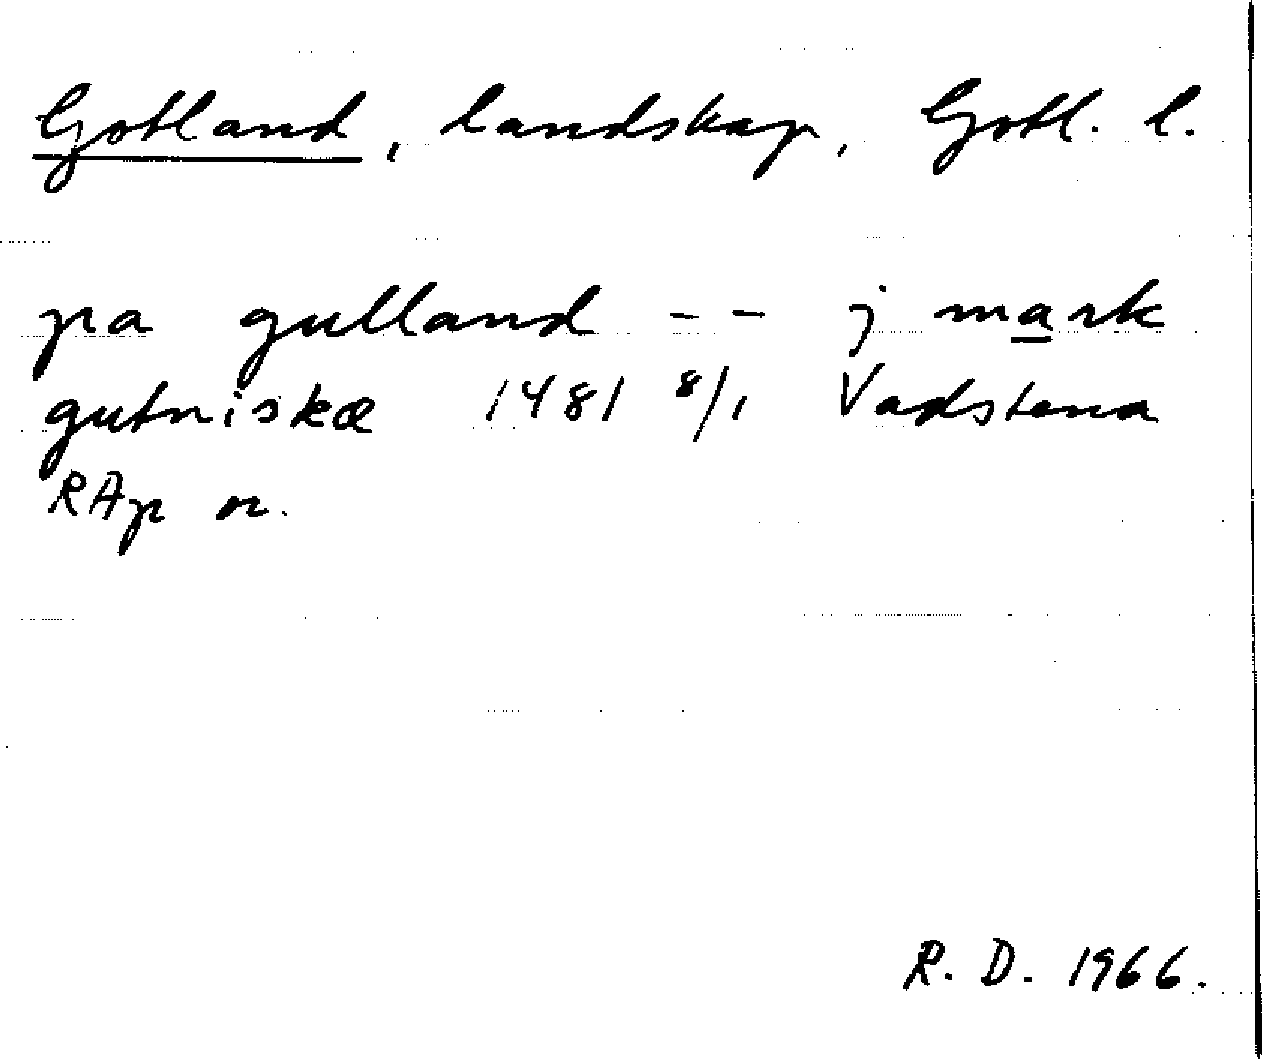 Gotland, landskap, Gotl. l.
pa gulland -- j mark
gutniskæ 1481 8/1 Vadstena
RAp or.
R. D. 1966.